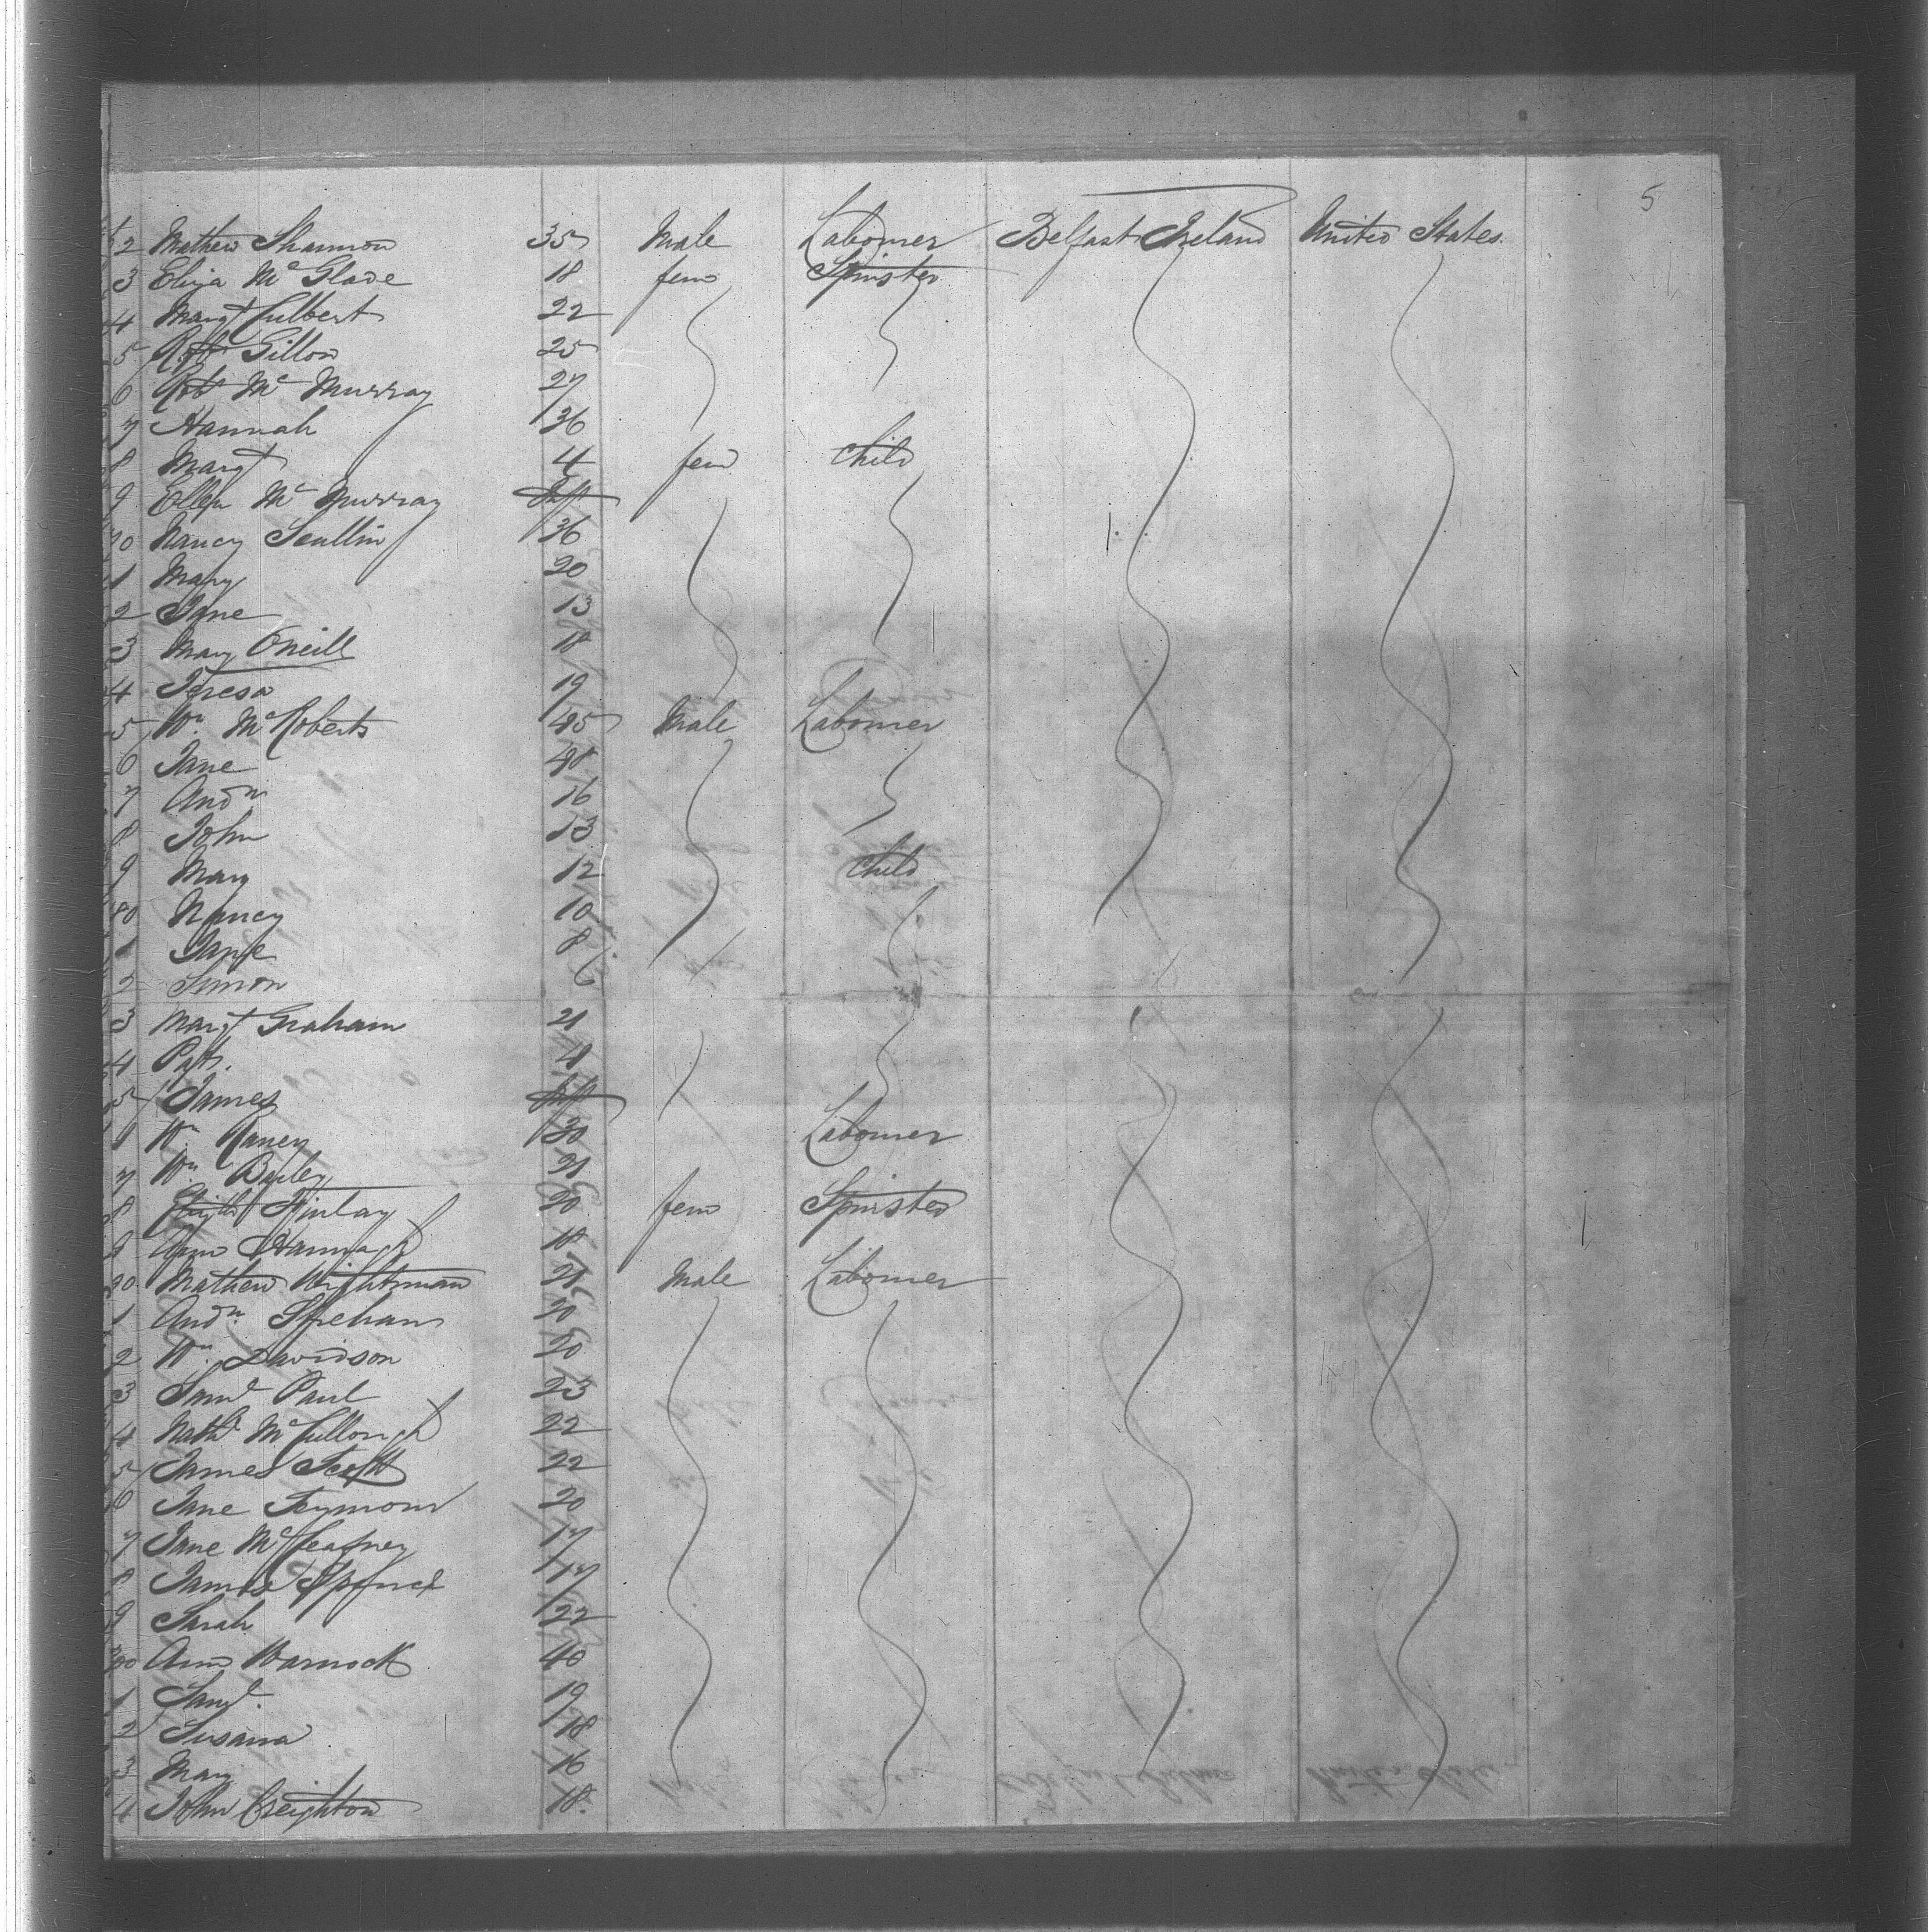 5
2 Mathew Shannon 35 Male Labourer Belfast Ireland United States.
3 Eliza McGlade 18 fem Spinster
4 Margt Culbert 22
5 Robt Gillon 25
6 Robt McMurray 27
7 Hannah 36
8 Margt 4 fem Child
9 Ellen McMurray Inft
70 Nancy Scullin 36
1 Mary 20
2 Jane 13
3 Mary ONeill 18
4 Teresa 19
5 Wm. McRoberts 45 Male Labourer
6 Jane 48
7 Andw 16
8 John 13
9 Mary 12 Child
80 Nancy 10
1 Jane 8
2 Simon 6
3 Margt Graham 21
4 Pat. 4
5 James Inft
Wm. Raney 30 Labourer
7 Wm Bailey 21
8 Finlay 20 fem Spinster
9 Ann Hannagh 18
90 Mathew Wightman 21 Male Labourer
1 Andw. 20
2 Wm. Davidson 20
3 Saml Paul 23
4 Nathl McCullough 22
5 James Scott 22
6 Jane Seymour 20
7 Jane 17
8 James Spence 17
9 Sarah 22
300 Ann Warnock 40
1 Saml. 19
2 Susana 18
3 Mary 16
4 John Creighton 18.